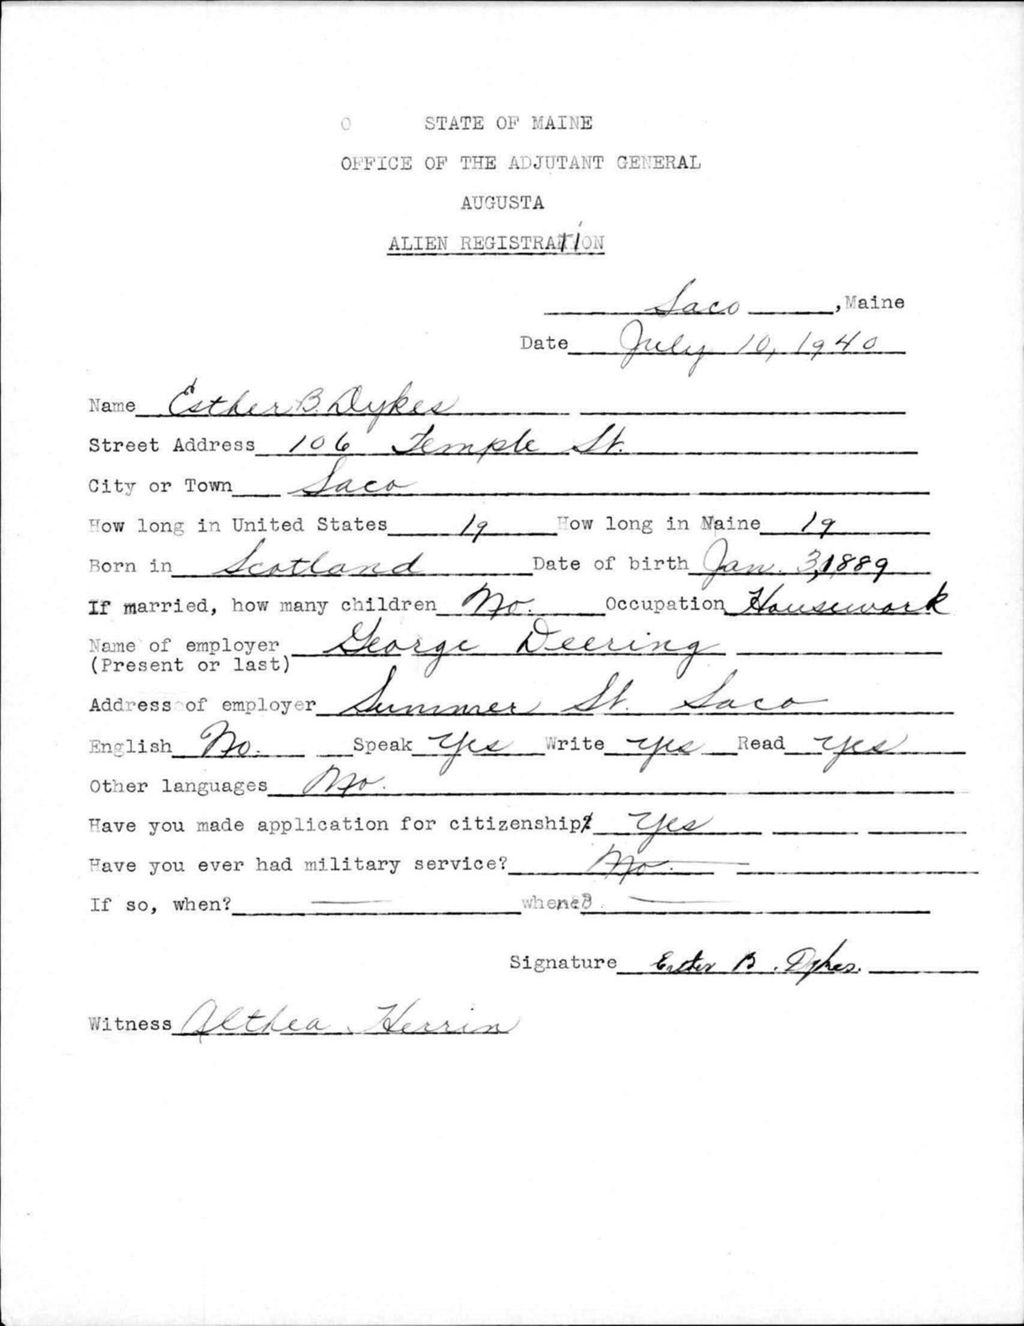 STATE OF MAINE
OFFICE OF THE ADJUTANT GENERAL
AUGUSTA
ALIEN REGISTRATION
Saco, Maine
Date July 10, 1940
Name Esther B. Dykes
Street Address 106 Temple St.
City or Town Saco
How long in United States 19 How long in Maine 19
Born in Scotland Date of birth Jan. 3, 1889
If married, how many children No. Occupation Housework
Name of employer George Deering
(Present or last)
Address of employer Summer St. Saco
English No. Speak Yes Write Yes Read Yes
Other languages No.
Have you made application for citizenship? Yes
Have you ever had military service? No.
If so, when? — where? —
Signature Esther B. Dykes.
Witness Althea Herrin